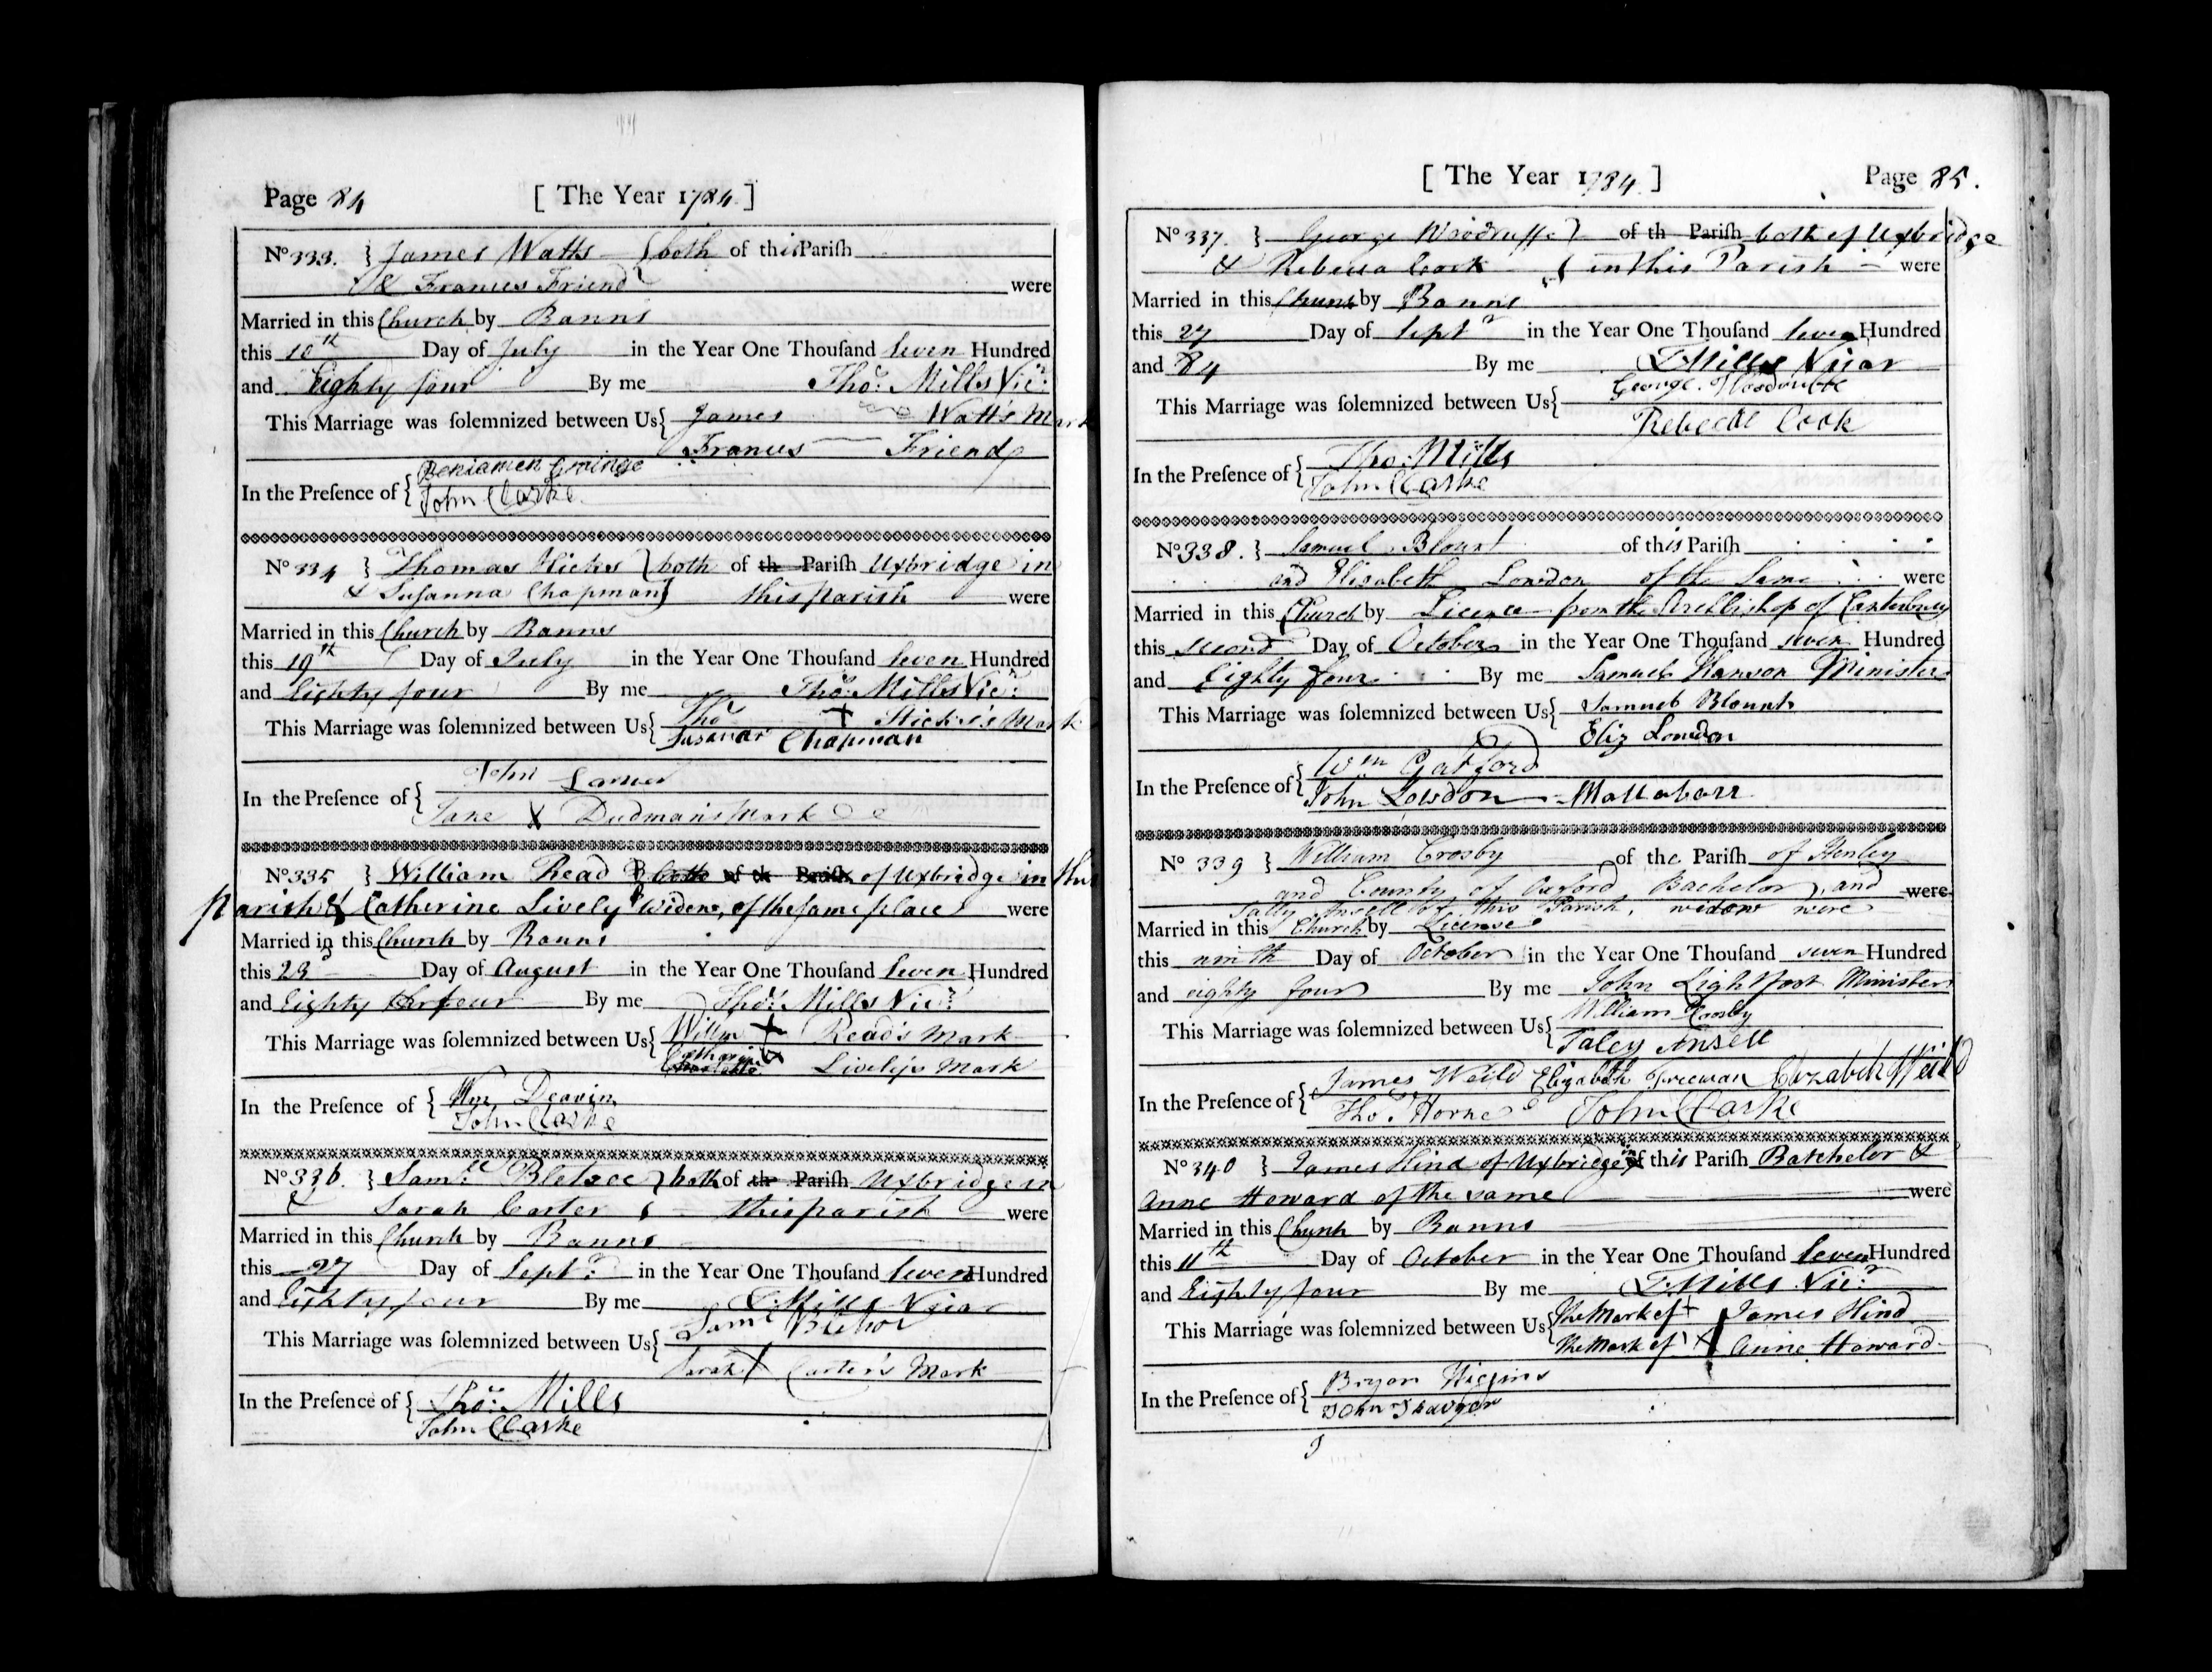 Page 84 [ The Year 1784. ]
No 333. } James Watts } both of this Pariſh
& Frances Friend were
Married in this Church by Banns
this 10th Day of July in the Year One Thouſand Seven Hundred
and Eighty four By me Thos: Mills Vicr:
This Marriage was ſolemnized between Us { James Watts's Mark
Frances Friend
In the Preſence of { Beniamen Grainge
John Clarke
No 334 } Thomas Hicks } both of th Pariſh Uxbridge in
& Suſanna Chapman } this parish were
Married in this Church by Banns
this 19th Day of July in the Year One Thouſand Seven Hundred
and Eighty four By me Thos: Mills Vicr:
This Marriage was ſolemnized between Us { Thos X Hicks's Mark
Susanar Chapman
In the Preſence of { John
Jane X Dudman's Mark
No 335 } William Read both of th Pariſh of Uxbridge in this
parish & Catherine Lively Widow, of the ſame place were
Married in this Church by Banns
this 23d Day of August in the Year One Thouſand Seven Hundred
and Eighty four By me Thos: Mills Vicr:
This Marriage was ſolemnized between Us { Willm X Read's Mark
Catharine X Lively's Mark
In the Preſence of { Wm Deavin
John Clarke
No 336. } Saml: Bletsoe } both of th Pariſh Uxbridge in
& Sarah Carter } this parish were
Married in this Church by Banns
this 27 Day of Septr: in the Year One Thouſand Seven Hundred
and Eighty four By me T. Mills Vicar
This Marriage was ſolemnized between Us { Saml
Sarah X Carter's Mark
In the Preſence of { Thos: Mills
John Clarke
[ The Year 1784. ] Page 85.
No 337. } George Woodruffe } of th Pariſh both of Uxbridge
& Rebecca Cook } in this Parish were
Married in this Church by Banns
this 27 Day of Septr in the Year One Thouſand Seven Hundred
and 84 By me T. Mills Vicar
This Marriage was ſolemnized between Us { George Woodruffe
Rebecca Cook
In the Preſence of { Tho: Mills
John Clarke
No 338. } Samuel Blount of this Pariſh
and Elisabeth Lowdon of the Same were
Married in this Church by Licence from the Archbishop of Canterbury
this second Day of October in the Year One Thouſand seven Hundred
and Eighty four By me Samuel Hanson Minister
This Marriage was ſolemnized between Us { Samuel Blount
Eliz Lowdon
In the Preſence of { Wm Gatford
John Lowdon Mallabarr
No 339 } William Crosby of the Pariſh of Henley
and County of Oxford, Bachelor, and were
Sally Ansell of this Parish, widow were
Married in this Church by License
this ninth Day of October in the Year One Thouſand seven Hundred
and eighty four By me John Lightfoot Minister
This Marriage was ſolemnized between Us { William Crosby
Saley Ansell
In the Preſence of { James Weild Elizabeth Freeman Elizabeth Weild
Thos. Horne John Clarke
No 340 } James Hind of Uxbridge in this Pariſh Batchelor &
Anne Howard of the same were
Married in this Church by Banns
this 11th Day of October in the Year One Thouſand Seven Hundred
and Eighty four By me T. Mills Vicr:
This Marriage was ſolemnized between Us { The Mark of + James Hind
The Mark of X Anne Howard
In the Preſence of { Bryan Higgins
John